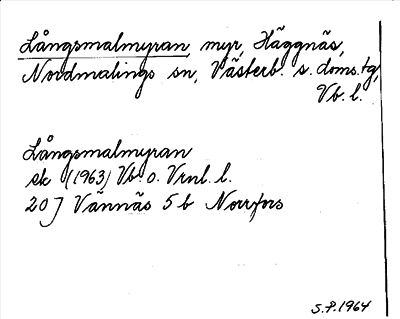 Långsmalmyran, myr, Häggnäs,
Nordmalings sn, Västerb. s. doms.tg,
Vb. l.
Långsmalmyran
ek (1963) Vb o. Vrml. l.
20 J Vännäs 5 b Norrfors
S.P. 1964